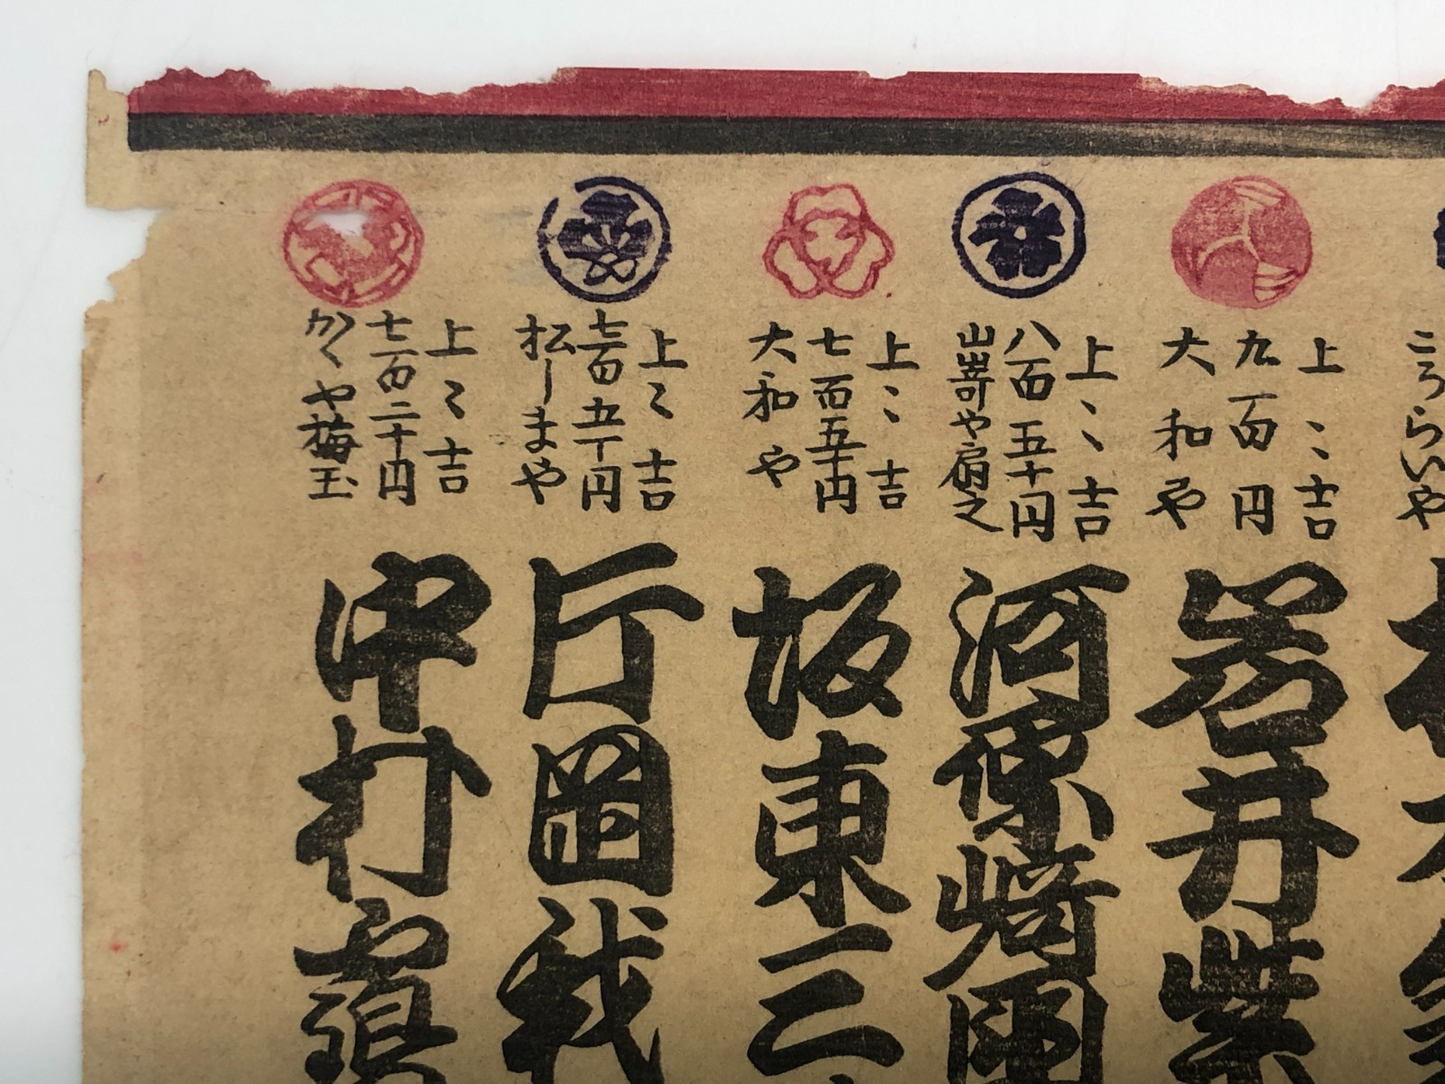 こうらいや
上〻吉
九百円
大和や
岩井紫
上〻吉
八百五十円
山嵜や扇之
河原崎国
上〻吉
七百五十円
大和や
坂東三
上〻吉
七百五十円
松しまや
片岡我
上〻吉
七百二十円
かゞや梅玉
中村